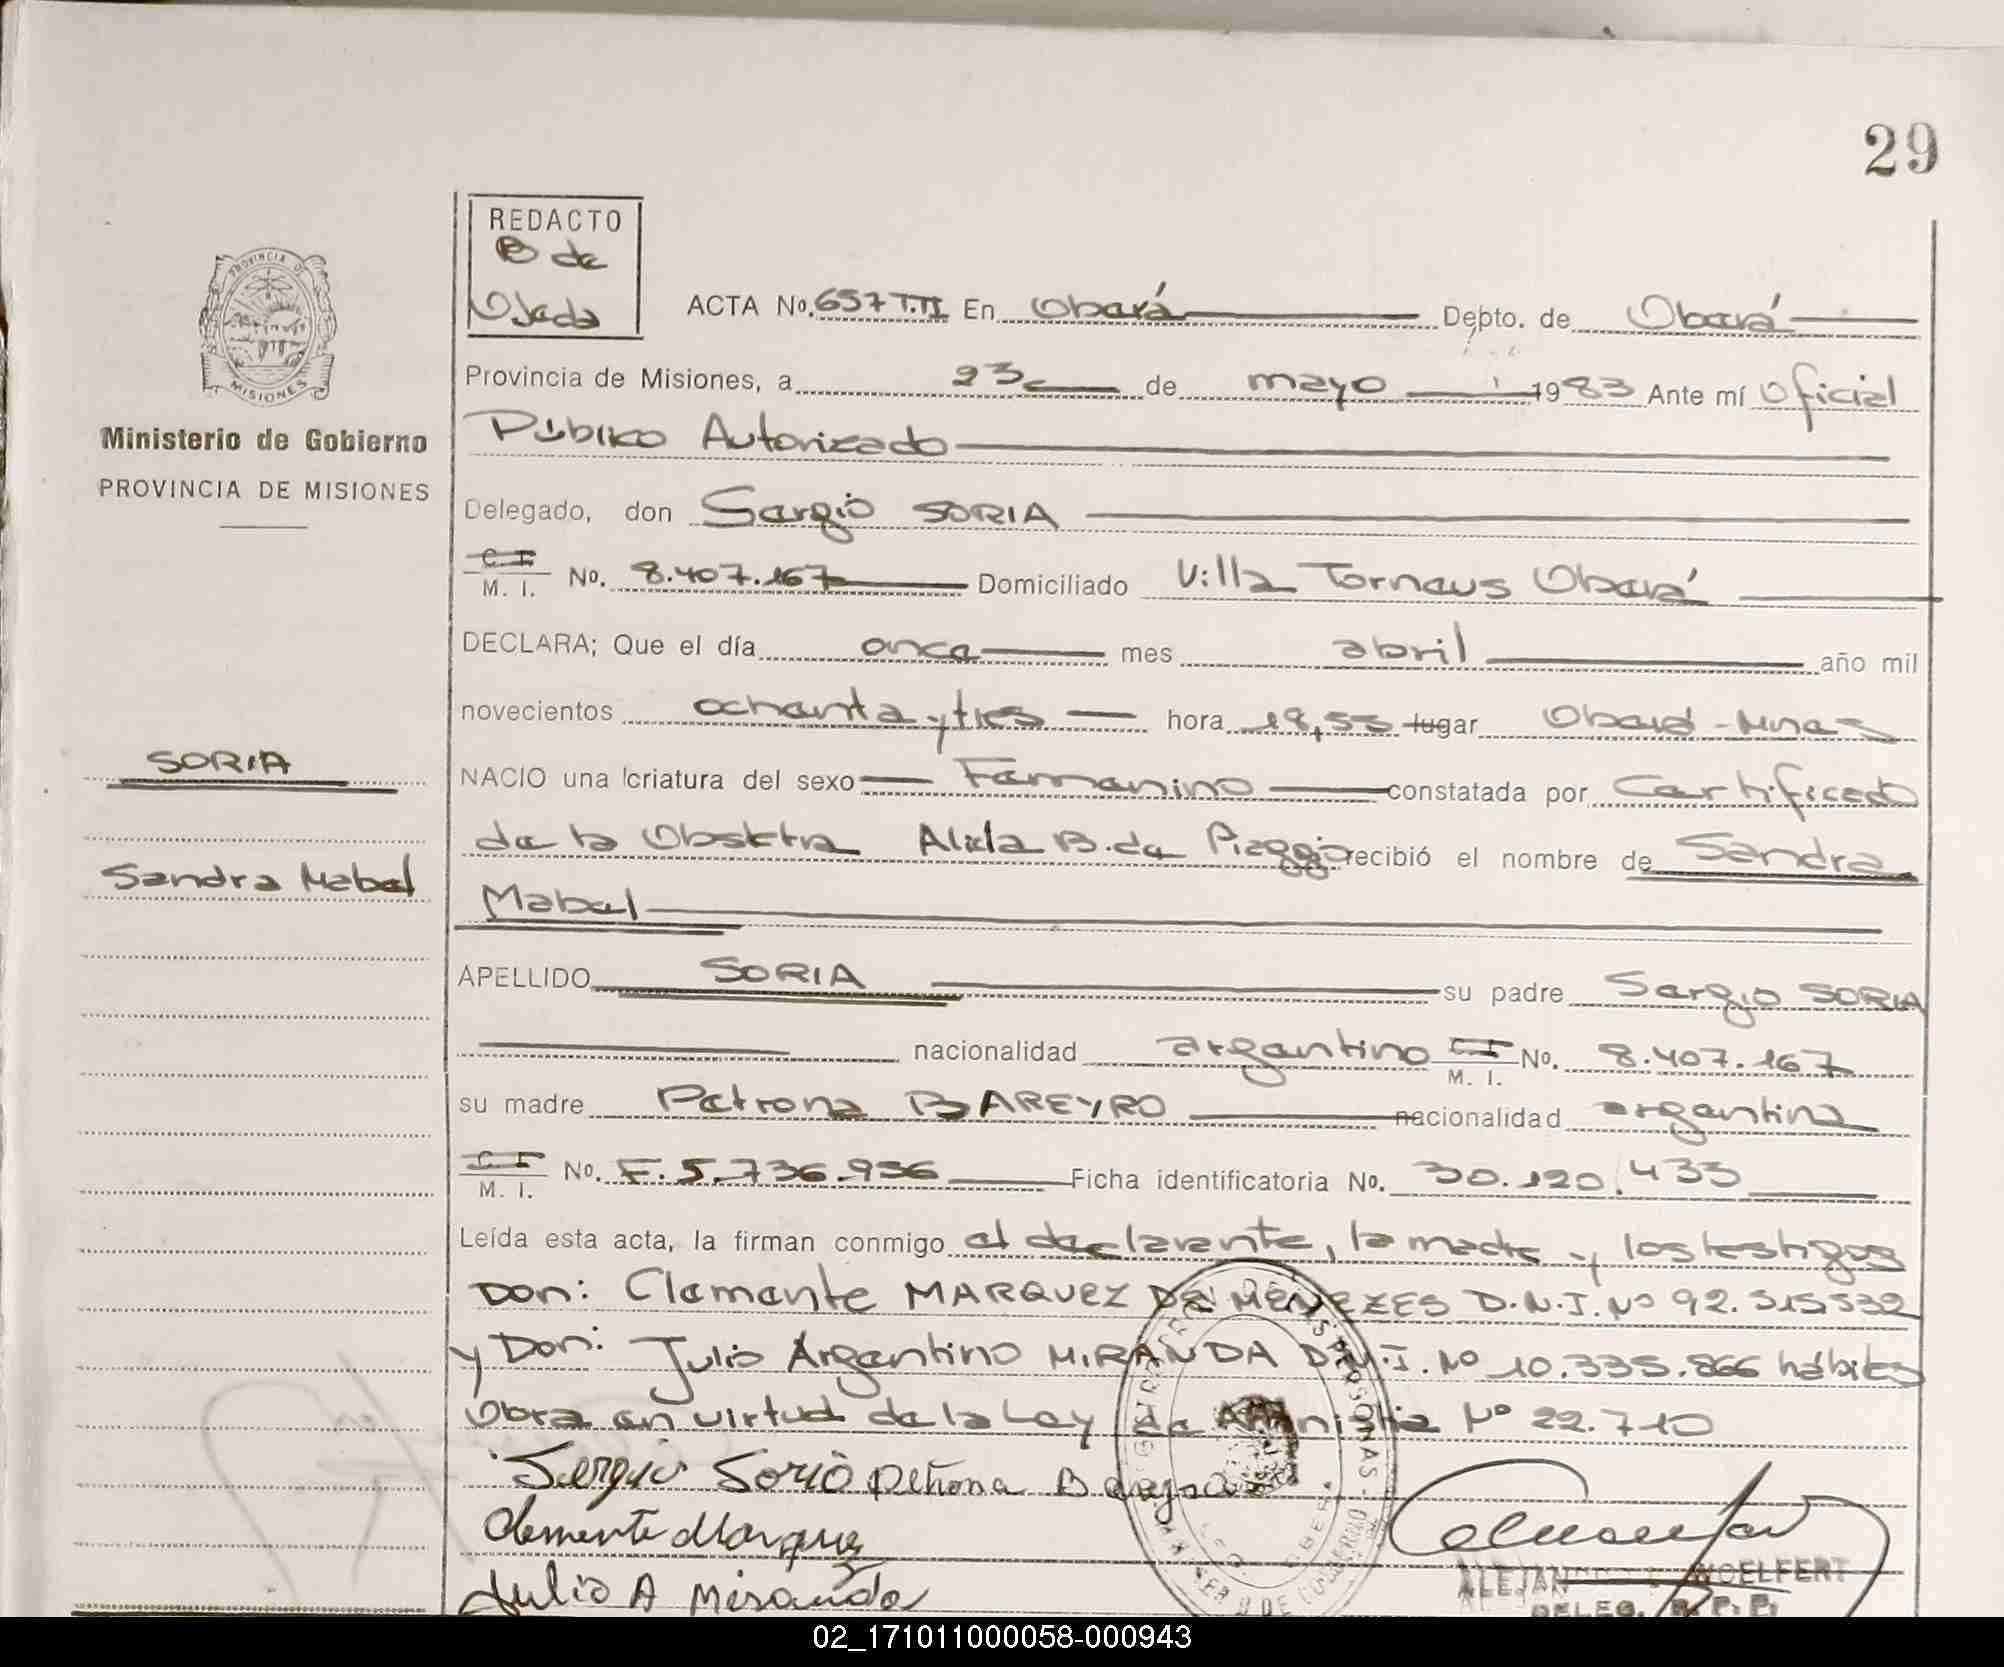 29
REDACTO
B de
Ojeda
PROVINCIA DE
MISIONES
Ministerio de Gobierno
PROVINCIA DE MISIONES
ACTA No. 657 T.II En Oberá Depto. de Oberá
Provincia de Misiones, a 23 de mayo 1983 Ante mí Oficial
Público Autorizado
Delegado, don Sergio SORIA
C I
M. I. No. 8.407.167 Domiciliado Villa Torneus Oberá
DECLARA; Que el día once mes abril año mil
novecientos ochenta y tres hora 18,55 lugar Oberá - Mnes
SORIA
NACIO una criatura del sexo Femenino constatada por Certificado
de la Obstetra Alida B. de Piaggio recibió el nombre de Sandra
Sandra Mabel
Mabel
APELLIDO SORIA su padre Sergio SORIA
nacionalidad argentino C I M. I. No. 8.407.167
su madre Petrona BAREYRO nacionalidad argentina
C I
M. I. No. F. 5.736.936 Ficha identificatoria No. 30.120.433
Leída esta acta, la firman conmigo el declarante, la madre y los testigos
Don: Clemente MARQUEZ DE MENEZES D.N.I. Nº 92.515.532
y Don: Julio Argentino MIRANDA D.N.I. Nº 10.335.866 hábiles
Obra en virtud de la Ley de Amnistia Nº 22.710
Sergio Soria Petrona Bareyro
Clemente Marquez
Julio A Miranda
NOELFERT
DELEG. R. P. P.
02_171011000058-000943